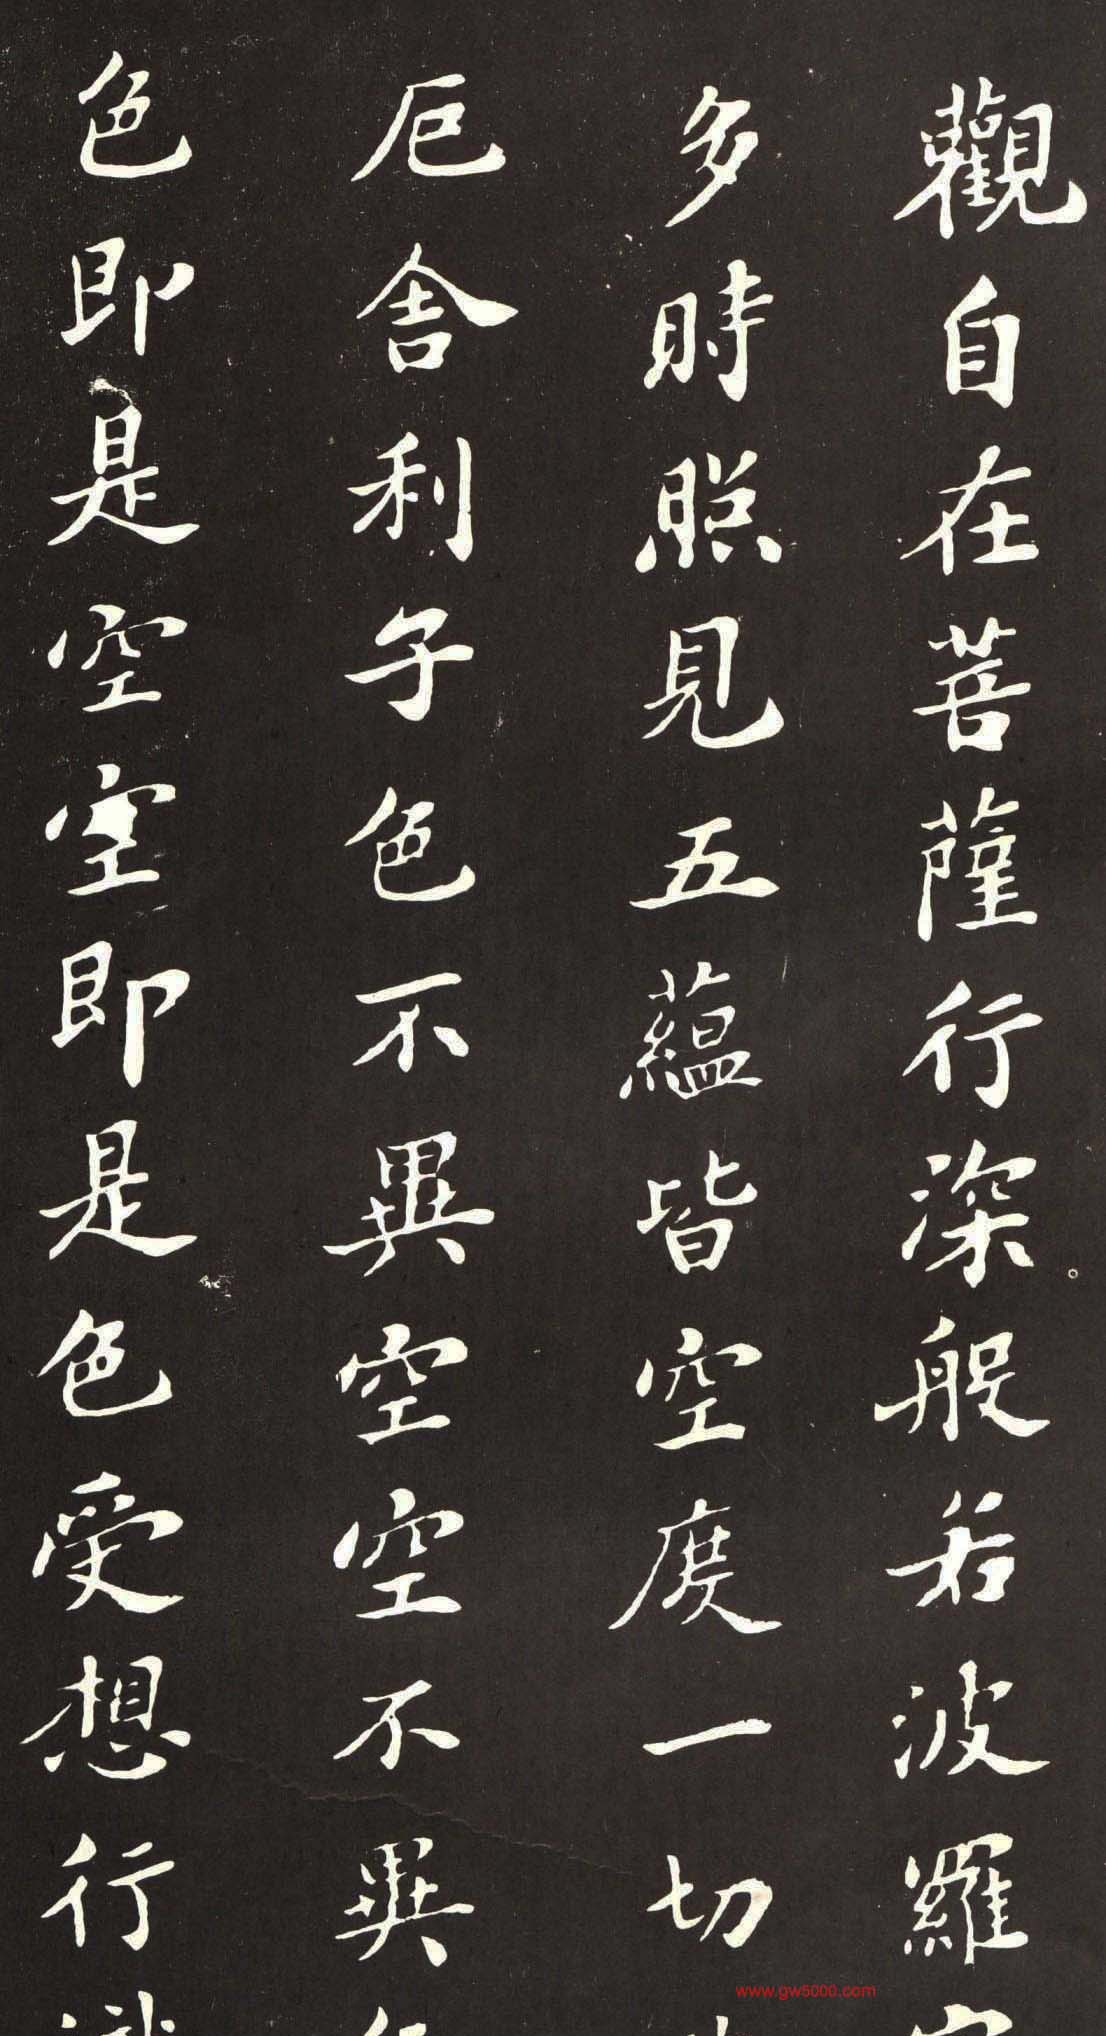 觀自在菩薩行深般若波羅
多時照見五蘊皆空度一切
厄舍利子色不異空空不異
色即是空空即是色受想行
www.gw5000.com